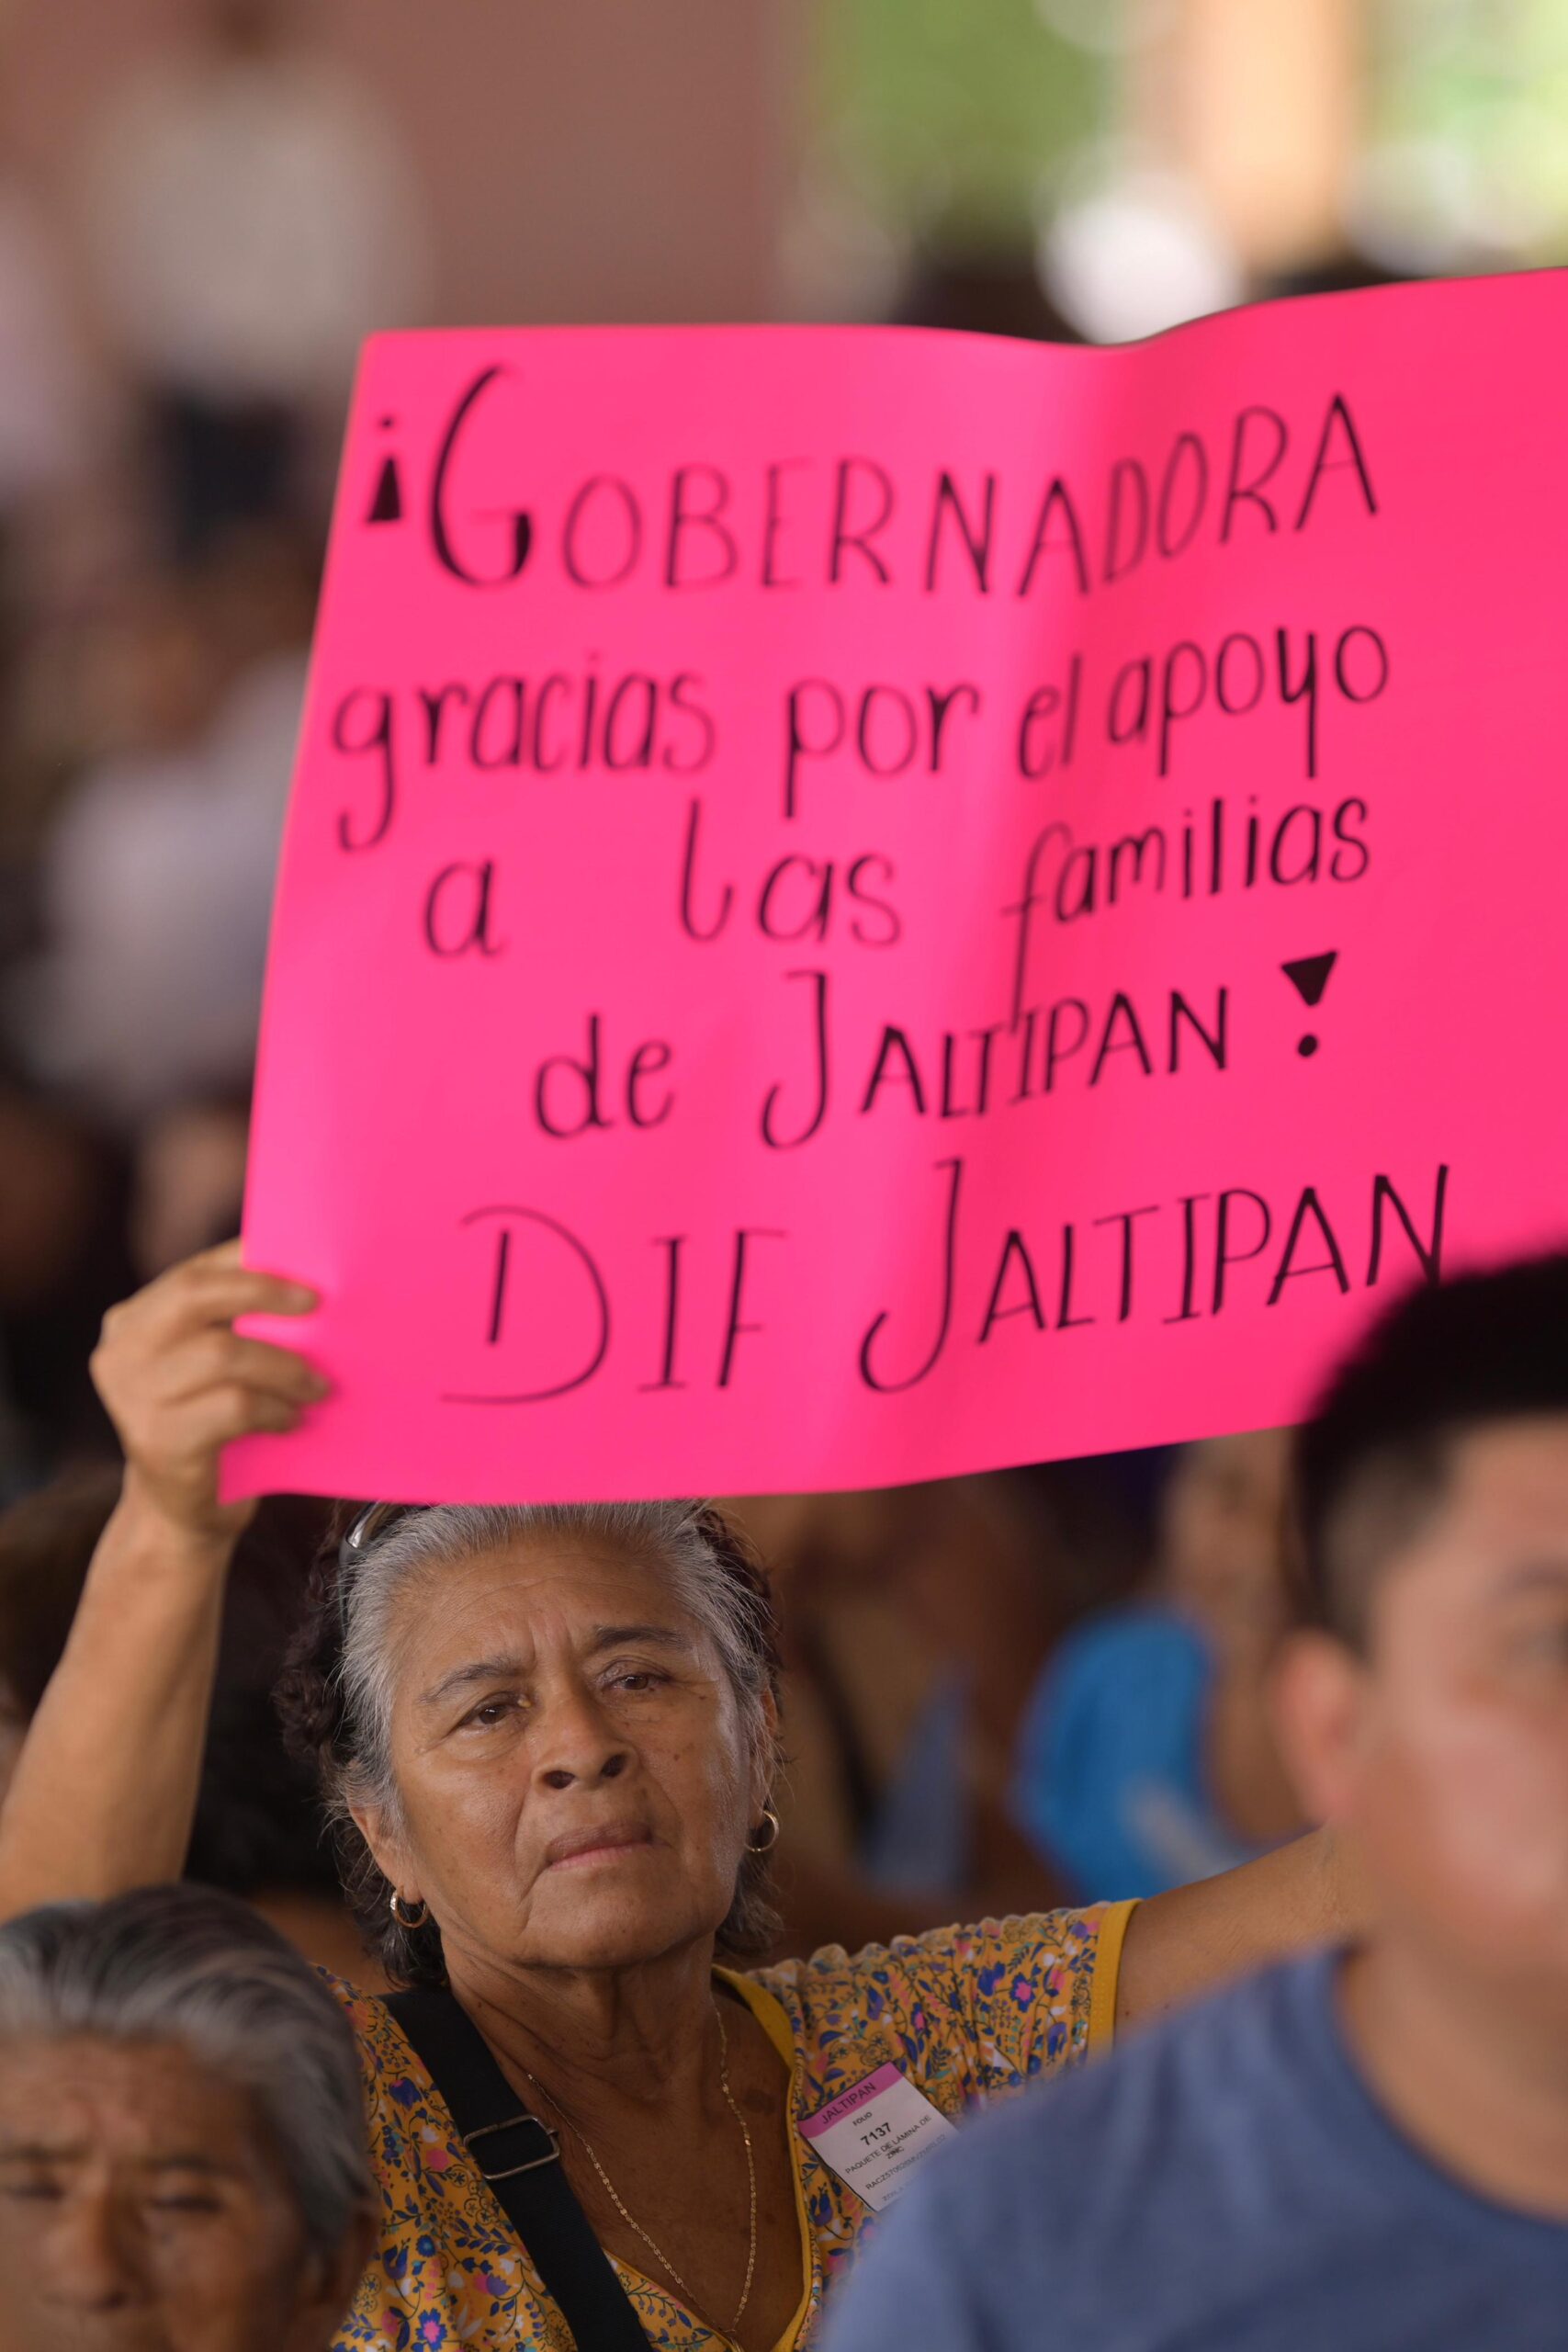 ¡GOBERNADORA
gracias por el apoyo
a las familias
de JALTIPAN!
DIF JALTIPAN
JALTIPAN
FOLIO
7137
PAQUETE DE LÁMINA DE
ZINC